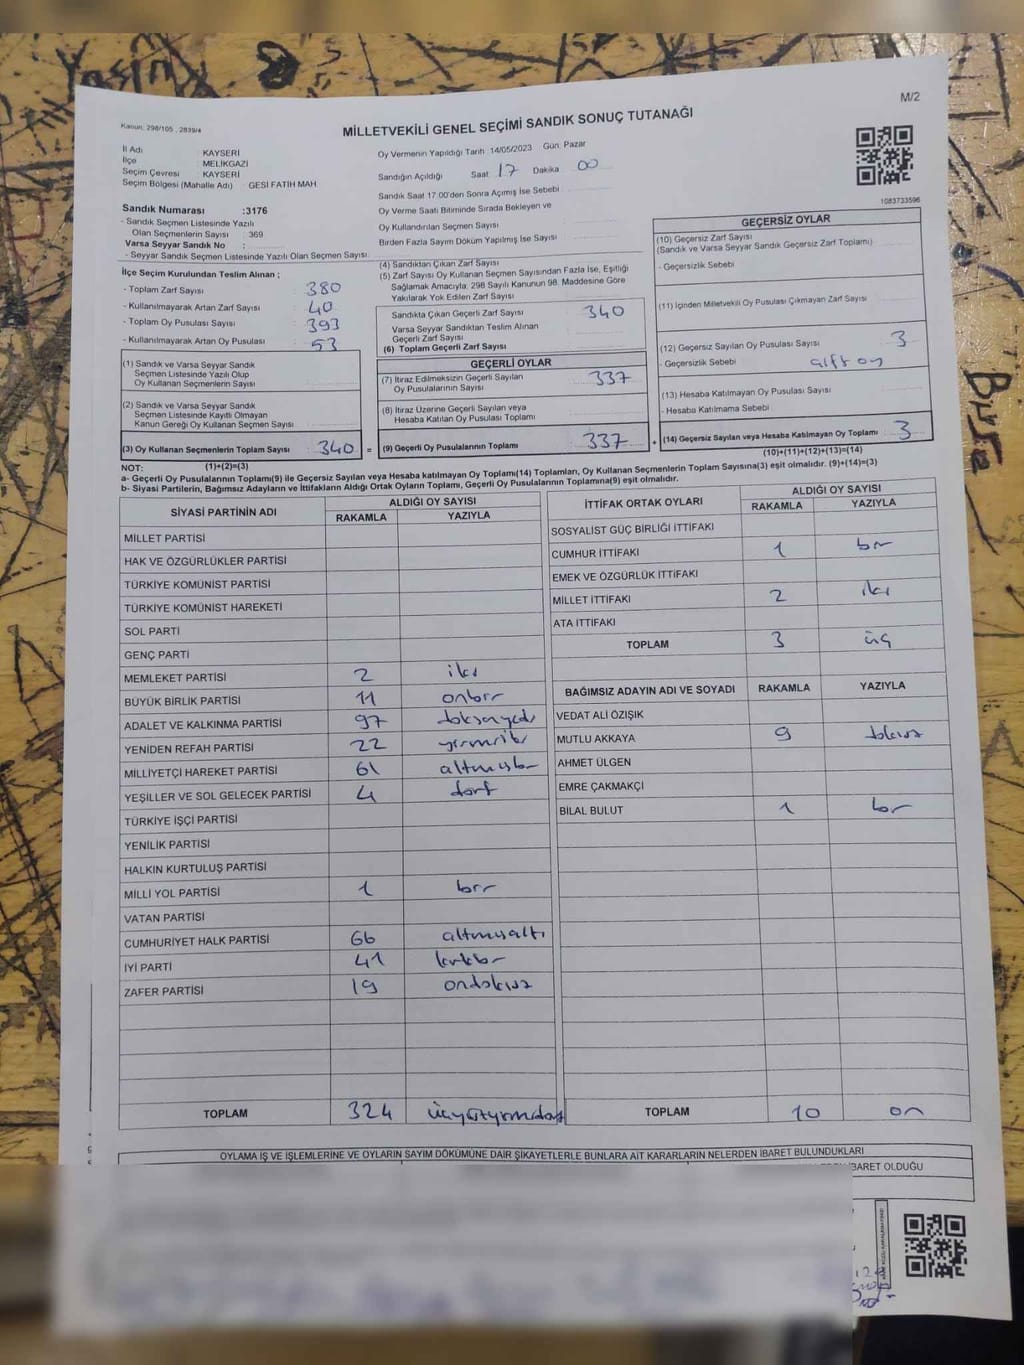 Yasin
M/2
Kanun: 298/105 , 2839/4
MİLLETVEKİLİ GENEL SEÇİMİ SANDIK SONUÇ TUTANAĞI
İl Adı KAYSERİ
İlçe MELİKGAZİ
Seçim Çevresi KAYSERİ
Seçim Bölgesi (Mahalle Adı) : GESİ FATİH MAH
Sandık Numarası :3176
- Sandık Seçmen Listesinde Yazılı
Olan Seçmenlerin Sayısı : 369
Varsa Seyyar Sandık No :
- Seyyar Sandık Seçmen Listesinde Yazılı Olan Seçmen Sayısı
Oy Vermenin Yapıldığı Tarih 14/05/2023 Gün: Pazar
Sandığın Açıldığı Saat 17 Dakika 00
Sandık Saat 17.00'den Sonra Açılmış İse Sebebi
Oy Verme Saati Bitiminde Sırada Bekleyen ve
Oy Kullandırılan Seçmen Sayısı
Birden Fazla Sayım Döküm Yapılmış İse Sayısı
1083733596
İlçe Seçim Kurulundan Teslim Alınan ;
- Toplam Zarf Sayısı : 380
- Kullanılmayarak Artan Zarf Sayısı : 40
- Toplam Oy Pusulası Sayısı : 393
- Kullanılmayarak Artan Oy Pusulası : 53
(1) Sandık ve Varsa Seyyar Sandık
Seçmen Listesinde Yazılı Olup
Oy Kullanan Seçmenlerin Sayısı
(2) Sandık ve Varsa Seyyar Sandık
Seçmen Listesinde Kayıtlı Olmayan
Kanun Gereği Oy Kullanan Seçmen Sayısı
(3) Oy Kullanan Seçmenlerin Toplam Sayısı 340 =
(1)+(2)=(3)
(4) Sandıktan Çıkan Zarf Sayısı
(5) Zarf Sayısı Oy Kullanan Seçmen Sayısından Fazla İse, Eşitliği
Sağlamak Amacıyla, 298 Sayılı Kanunun 98. Maddesine Göre
Yakılarak Yok Edilen Zarf Sayısı
Sandıkta Çıkan Geçerli Zarf Sayısı : 340
Varsa Seyyar Sandıktan Teslim Alınan
Geçerli Zarf Sayısı
(6) Toplam Geçerli Zarf Sayısı
GEÇERLİ OYLAR
(7) İtiraz Edilmeksizin Geçerli Sayılan
Oy Pusulalarının Sayısı : 337
(8) İtiraz Üzerine Geçerli Sayılan veya
Hesaba Katılan Oy Pusulası Toplamı
(9) Geçerli Oy Pusulalarının Toplamı 337 +
GEÇERSİZ OYLAR
(10) Geçersiz Zarf Sayısı
(Sandık ve Varsa Seyyar Sandık Geçersiz Zarf Toplamı)
- Geçersizlik Sebebi
(11) İçinden Milletvekili Oy Pusulası Çıkmayan Zarf Sayısı
(12) Geçersiz Sayılan Oy Pusulası Sayısı : 3
- Geçersizlik Sebebi : çift oy
(13) Hesaba Katılmayan Oy Pusulası Sayısı
- Hesaba Katılmama Sebebi
(14) Geçersiz Sayılan veya Hesaba Katılmayan Oy Toplamı 3
(10)+(11)+(12)+(13)=(14)
NOT:
a- Geçerli Oy Pusulalarının Toplamı(9) ile Geçersiz Sayılan veya Hesaba katılmayan Oy Toplamı(14) Toplamları, Oy Kullanan Seçmenlerin Toplam Sayısına(3) eşit olmalıdır. (9)+(14)=(3)
b- Siyasi Partilerin, Bağımsız Adayların ve İttifakların Aldığı Ortak Oyların Toplamı, Geçerli Oy Pusulalarının Toplamına(9) eşit olmalıdır.
SİYASİ PARTİNİN ADI ALDIĞI OY SAYISI
RAKAMLA YAZIYLA
MİLLET PARTİSİ
HAK VE ÖZGÜRLÜKLER PARTİSİ
TÜRKİYE KOMÜNİST PARTİSİ
TÜRKİYE KOMÜNİST HAREKETİ
SOL PARTİ
GENÇ PARTİ
MEMLEKET PARTİSİ 2 iki
BÜYÜK BİRLİK PARTİSİ 11 onbir
ADALET VE KALKINMA PARTİSİ 97 doksanyedi
YENİDEN REFAH PARTİSİ 22 yirmiiki
MİLLİYETÇİ HAREKET PARTİSİ 61 altmışbir
YEŞİLLER VE SOL GELECEK PARTİSİ 4 dört
TÜRKİYE İŞÇİ PARTİSİ
YENİLİK PARTİSİ
HALKIN KURTULUŞ PARTİSİ
MİLLİ YOL PARTİSİ 1 bir
VATAN PARTİSİ
CUMHURİYET HALK PARTİSİ 66 altmışaltı
İYİ PARTİ 41 kırkbir
ZAFER PARTİSİ 19 ondokuz
TOPLAM 324 üçyüzyirmidört
İTTİFAK ORTAK OYLARI ALDIĞI OY SAYISI
RAKAMLA YAZIYLA
SOSYALİST GÜÇ BİRLİĞİ İTTİFAKI
CUMHUR İTTİFAKI 1 bir
EMEK VE ÖZGÜRLÜK İTTİFAKI
MİLLET İTTİFAKI 2 iki
ATA İTTİFAKI
TOPLAM 3 üç
BAĞIMSIZ ADAYIN ADI VE SOYADI RAKAMLA YAZIYLA
VEDAT ALİ ÖZIŞIK
MUTLU AKKAYA 9 dokuz
AHMET ÜLGEN
EMRE ÇAKMAKÇİ
BİLAL BULUT 1 bir
TOPLAM 10 on
OYLAMA İŞ VE İŞLEMLERİNE VE OYLARIN SAYIM DÖKÜMÜNE DAİR ŞİKAYETLERLE BUNLARA AİT KARARLARIN NELERDEN İBARET BULUNDUKLARI
İBARET OLDUĞU